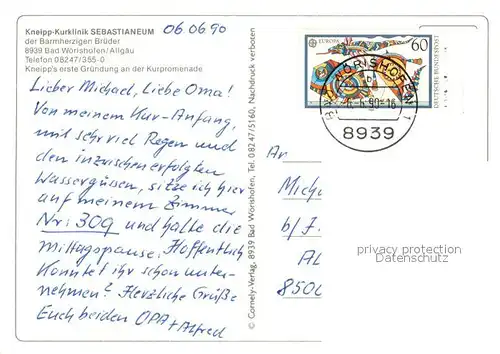 Kneipp-Kurklinik SEBASTIANEUM
der Barmherzigen Brüder
8939 Bad Wörishofen/Allgäu
Telefon 08247/355-0
Kneipp's erste Gründung an der Kurpromenade
06.06.90
Lieber Michael, Liebe Oma!
Von meinem Kur-Anfang,
mit sehr viel Regen und
den inzwischen erfolgten
Wassergüssen, sitze ich hier
auf meinem Zimmer
Nr: 309 und halte die
Mittagspause. Hoffentlich
Konntet ihr schon unter-
nehmen? Herzliche Grüße
Euch beiden OPA + Alfred
© Cornely-Verlag, 8939 Bad Wörishofen, Tel. 08247/5160, Nachdruck verboten
EUROPA
60
DEUTSCHE BUNDESPOST
WÖRISHOFEN 1
8939
An
Micha
b/
8500
privacy protection
Datenschutz